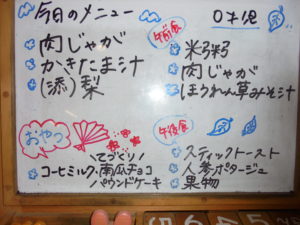 今日のメニュー
肉じゃが
かきたま汁
(添)梨
おやつ
てづくり
コーヒミルク・南瓜チョコ
パウンドケーキ
0才児
午前食
米粥
肉じゃが
ほうれん草みそ汁
午後食
スティックトースト
人参ポタージュ
果物